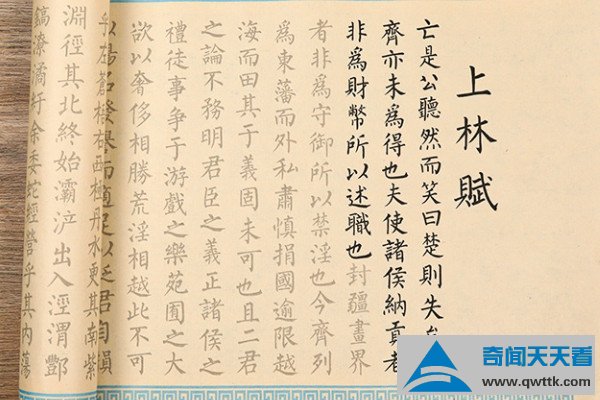 上林賦
亡是公聽然而笑曰楚則失
齊亦未爲得也夫使諸侯納貢者
非爲財幣所以述職也封疆畫界
者非爲守御所以禁淫也今齊列
爲東藩而外私肅慎捐國逾限越
海而田其于義固未可也且二君
之論不務明君臣之義正諸侯之
禮徒事爭于游戲之樂苑囿之大
欲以奢侈相勝荒淫相越此不可
以揚名發而適足以君自損
乎西極丹水更其南紫
淵徑其北終始灞滻出入涇渭酆
鎬潦潏紆余委蛇經營乎其內蕩
奇闻天天看
www.qwttk.com